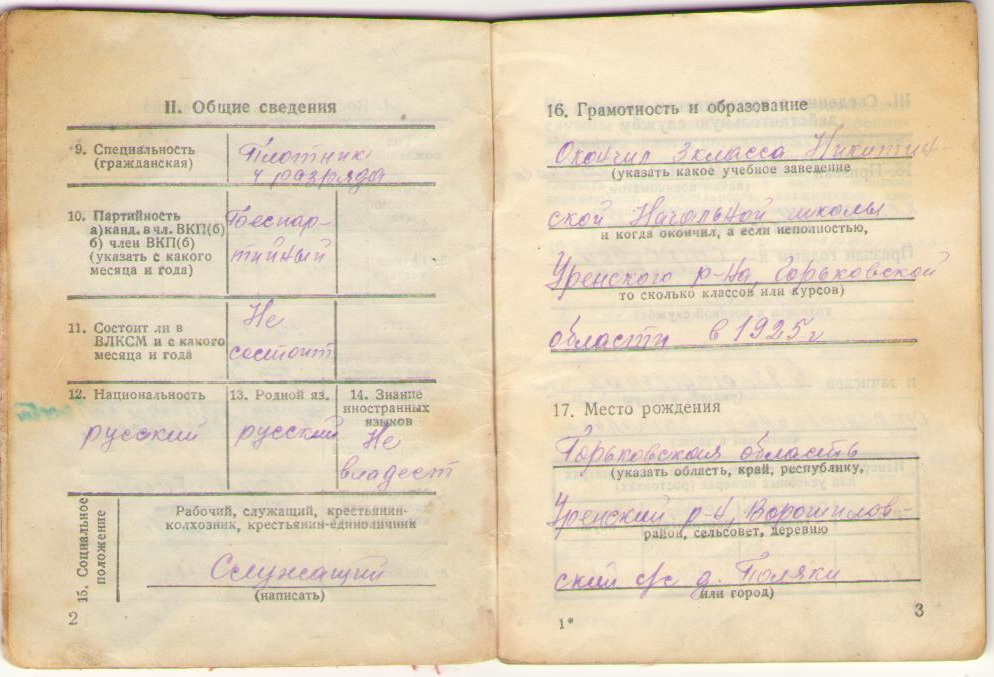 II. Общие сведения
9. Специальность
(гражданская)
Плотник
4 разряда
10. Партийность
а) канд. в чл. ВКП(б)
б) член ВКП(б)
(указать с какого
месяца и года)
Беспар-
тийный
11. Состоит ли в
ВЛКСМ и с какого
месяца и года
Не
состоит
12. Национальность
русский
13. Родной яз.
русский
14. Знание
иностранных
языков
Не
владеет
15. Социальное
положение
Рабочий, служащий, крестьянин-
колхозник, крестьянин-единоличник
Служащий
(написать)
2
16. Грамотность и образование
Окончил 3 класса Никитин-
(указать какое учебное заведение
ской Начальной школы
и когда окончил, а если неполностью,
Уренского р-на, Горьковской
то сколько классов или курсов)
области в 1925 г
17. Место рождения
Горьковская область
(указать область, край, республику,
Уренский р-н, Ворошилов-
район, сельсовет, деревню
ский с/с д. Поляки
или город)
1*
3